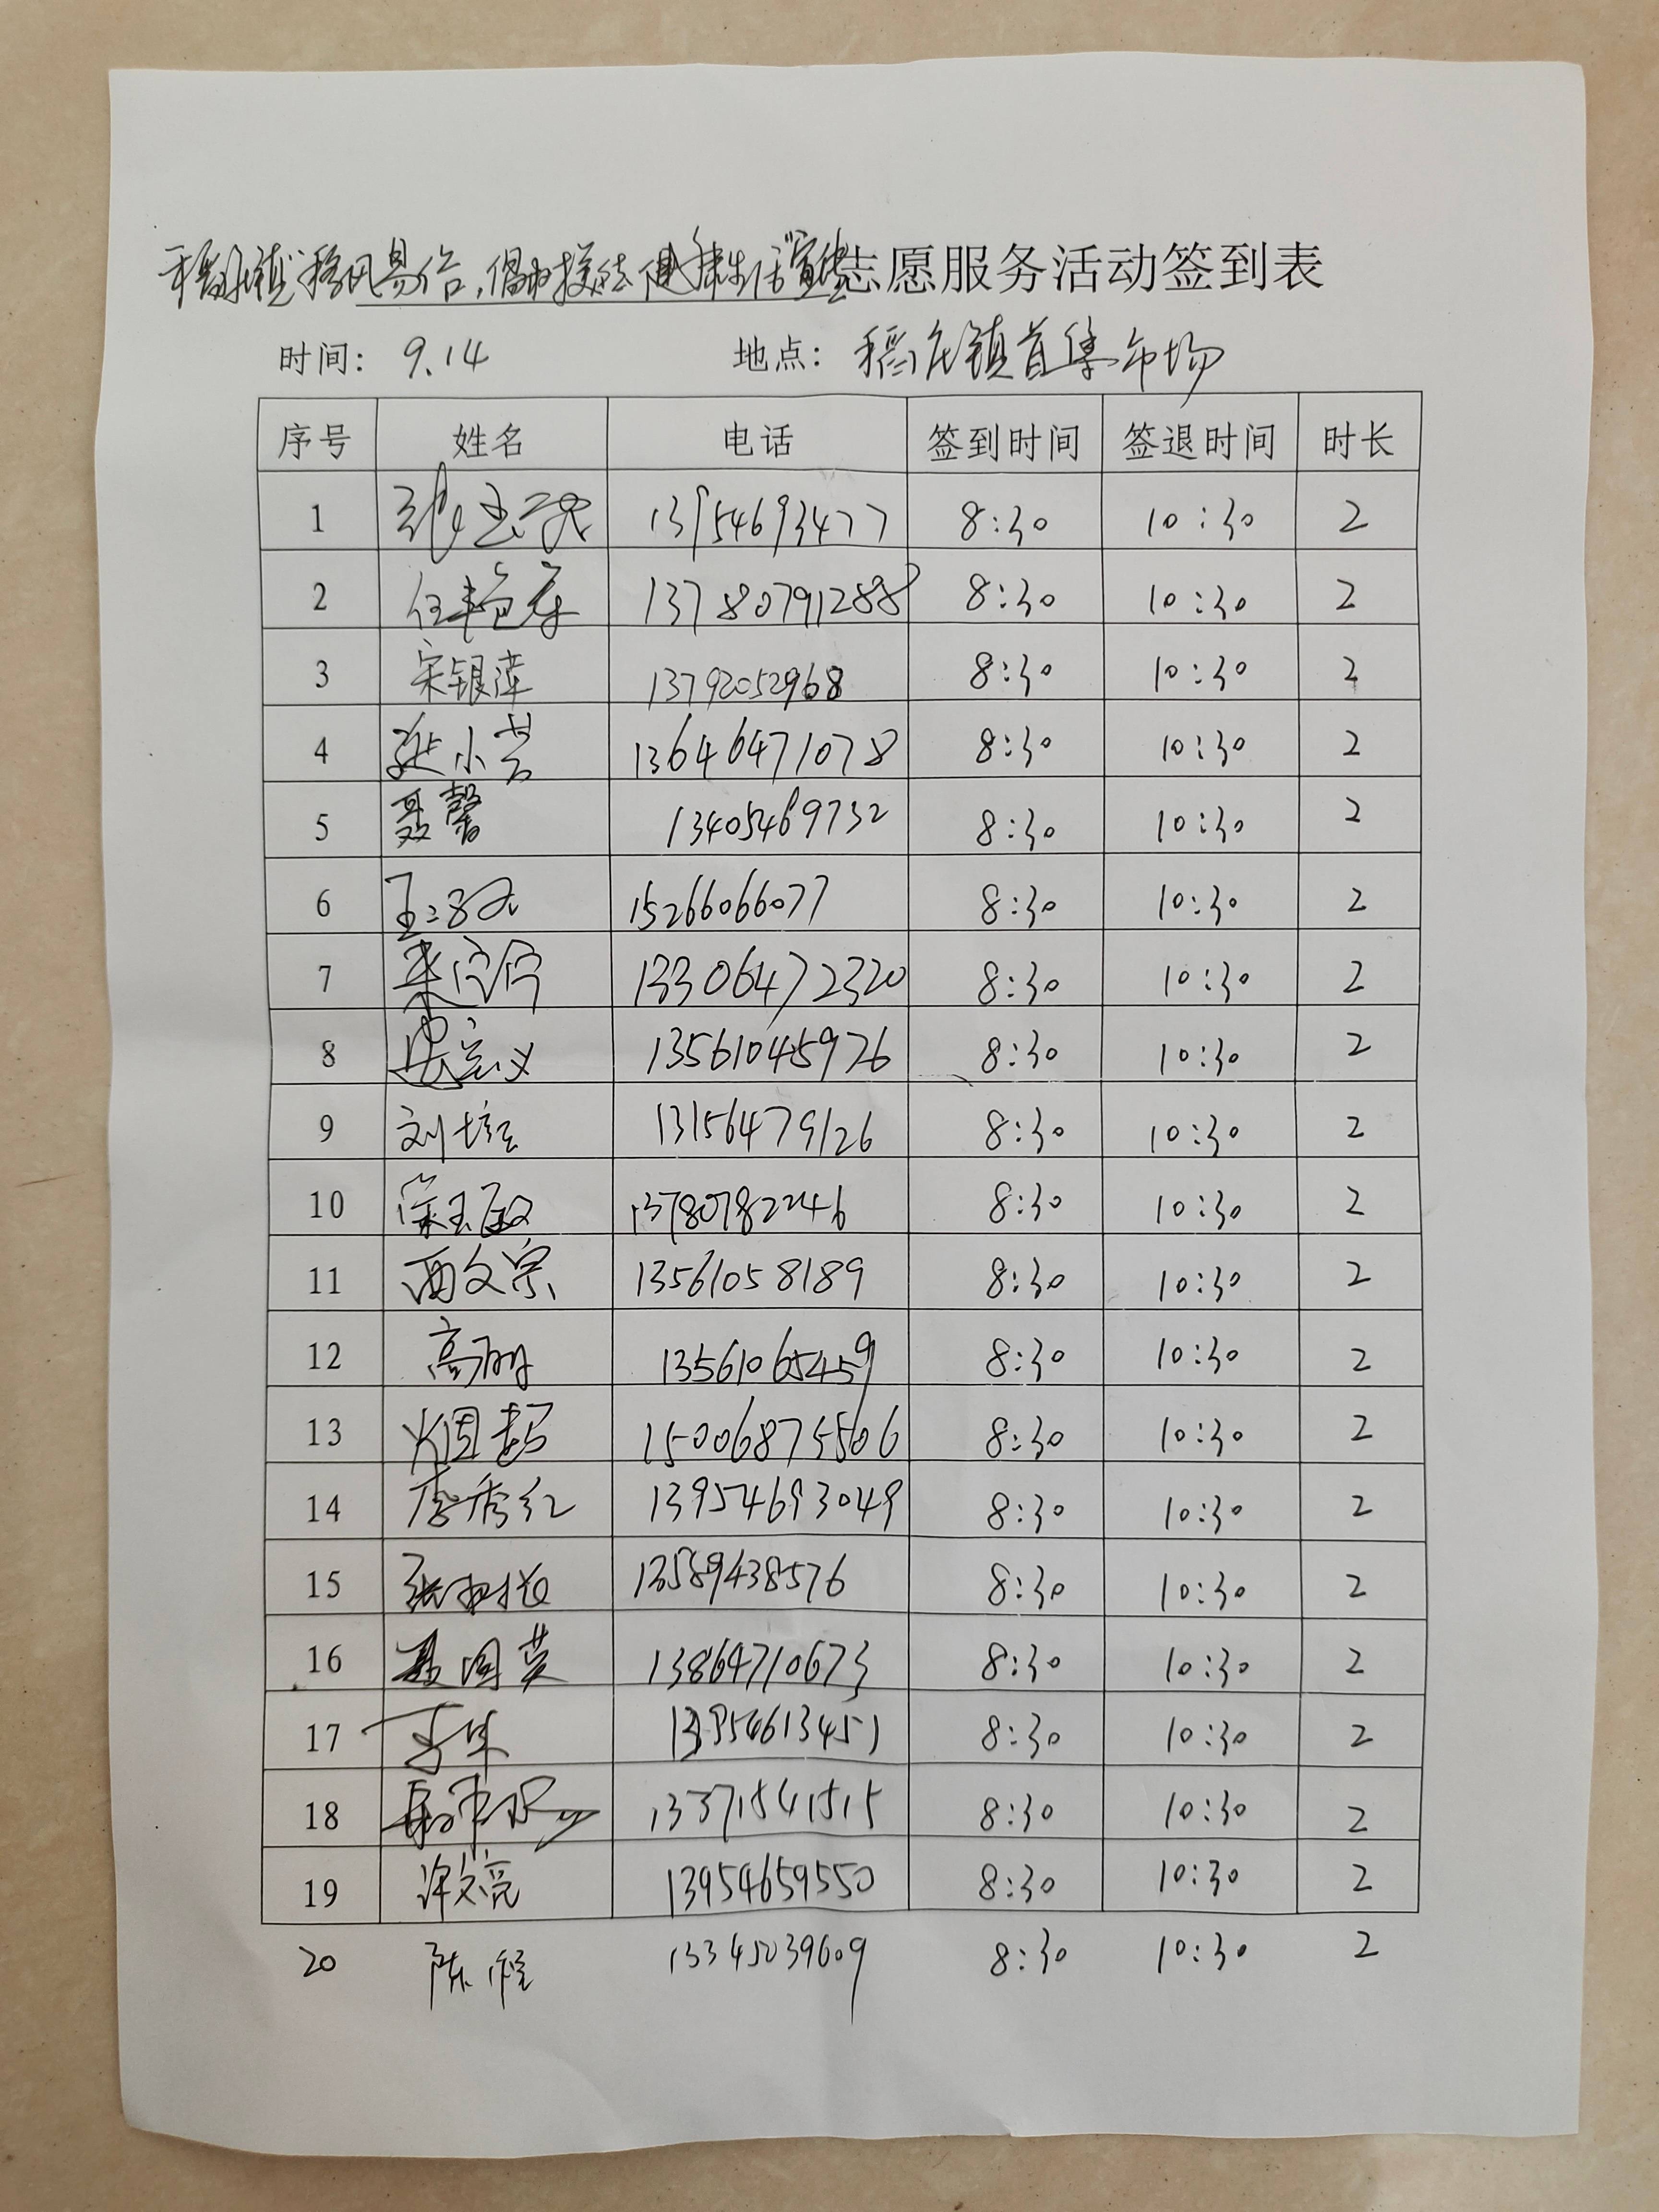 稻庄镇"移风易俗,倡树文明健康生活"宣传志愿服务活动签到表
时间: 9.14 地点: 稻庄镇首集市场
序号 姓名 电话 签到时间 签退时间 时长
1 13954693477 8:30 10:30 2
2 任艳春 13780791288 8:30 10:30 2
3 宋银萍 13792052968 8:30 10:30 2
4 延小芸 13646471078 8:30 10:30 2
5 聂馨 13405469732 8:30 10:30 2
6 15266066077 8:30 10:30 2
7 13306472320 8:30 10:30 2
8 13561045926 8:30 10:30 2
9 刘培玉 13156479126 8:30 10:30 2
10 13780782246 8:30 10:30 2
11 西文宗 13561058189 8:30 10:30 2
12 高丽 13561065459 8:30 10:30 2
13 15006875506 8:30 10:30 2
14 李秀红 13954693049 8:30 10:30 2
15 13589438576 8:30 10:30 2
16 聂国英 13864710673 8:30 10:30 2
17 13954613451 8:30 10:30 2
18 13371541515 8:30 10:30 2
19 许文亮 13954659550 8:30 10:30 2
20 陈煌 13345039609 8:30 10:30 2